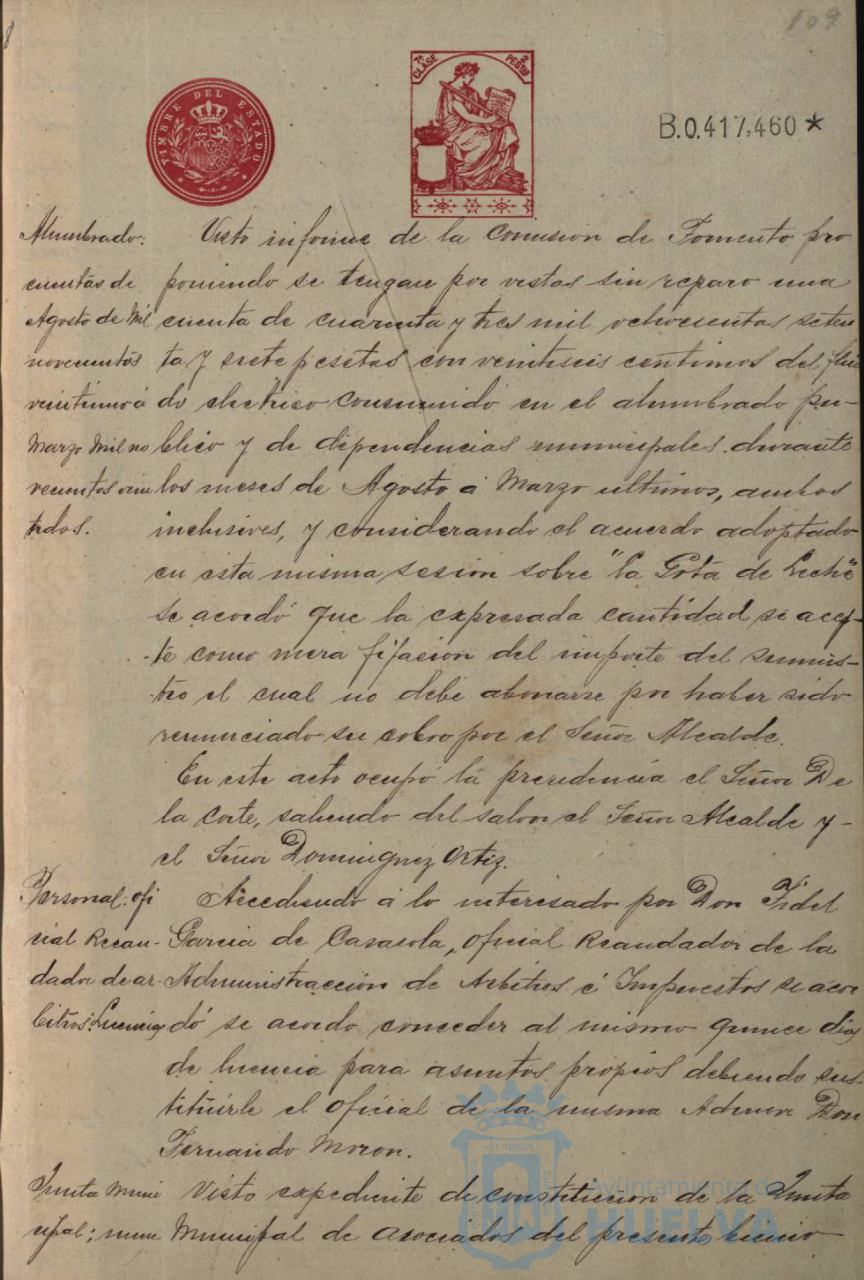 109
TIMBRE DEL ESTADO
7ª CLASE
2 PESTAS
B.0.417,460 *
Alumbrado:
cuentas de
Agosto de Mil
novecientos
veintiuno á
Marzo Mil no
vecientos vein
tidos.
Visto informe de la Comision de Fomento pro
poniendo se tengan por vistas sin reparo una
cuenta de cuarenta y tres mil ochocientas seten
ta y siete pesetas con veintiseis centimos del flui
do electrico consumido en el alumbrado pu-
blico y de dependencias municipales durante
los meses de Agosto á Marzo ultimos, ambos
inclusives, y considerando el acuerdo adoptado
en esta misma sesión sobre "la Gota de Leche"
se acordó que la expresada cantidad se acep-
te como mera fijacion del importe del suminis-
tro el cual no debe abonarse por haber sido
renunciado su cobro por el Señor Alcalde.
En este acto ocupó la presidencia el Señor De
la Corte, saliendo del salon el Señor Alcalde y
el Señor Dominguez Ortiz.
Personal: ofi
cial Recau-
dador de ar-
bitros: Licencia
Accediendo á lo interesado por Don Fidel
Garcia de Casasola, oficial Recaudador de la
Administracción de Arbitros é Impuestos se acor
dó se acordo conceder al mismo quince dias
de licencia para asuntos propios debiendo sus-
tituirle el oficial de la misma Admon Don
Fernando Moron.
Junta Muni
cipal;
Visto expediente de constitucion de la Junta
Municipal de asociados del presente bienio
Ayuntamiento de
HUELVA